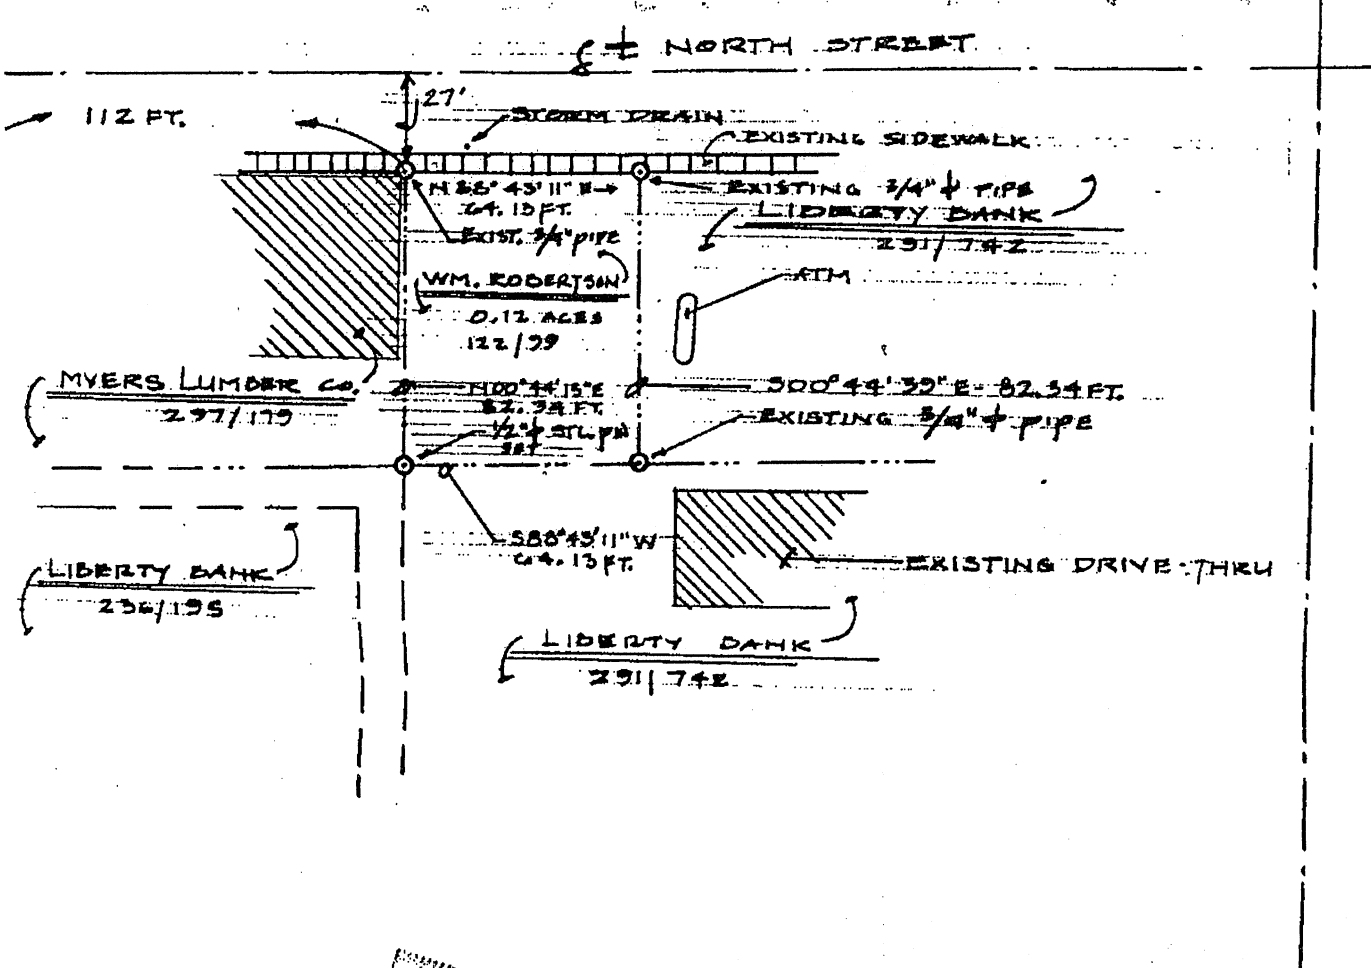 ℄ NORTH STREET
27'
112 FT.
STORM DRAIN
EXISTING SIDEWALK
N 88° 43' 11" E
64.13 FT.
EXISTING 3/4" ϕ PIPE
LIBERTY BANK
291/742
EXIST. 3/4" PIPE
WM. ROBERTSON
0.12 ACES
122/99
ATM
MYERS LUMBER CO.
297/179
N00°44'15"E
82.34 FT.
S00°44'39"E - 82.34 FT.
1/2" ϕ STL. PIN
SET
EXISTING 3/4" ϕ PIPE
S88°43'11"W
64.13 FT.
EXISTING DRIVE-THRU
LIBERTY BANK
236/195
LIBERTY BANK
291/742